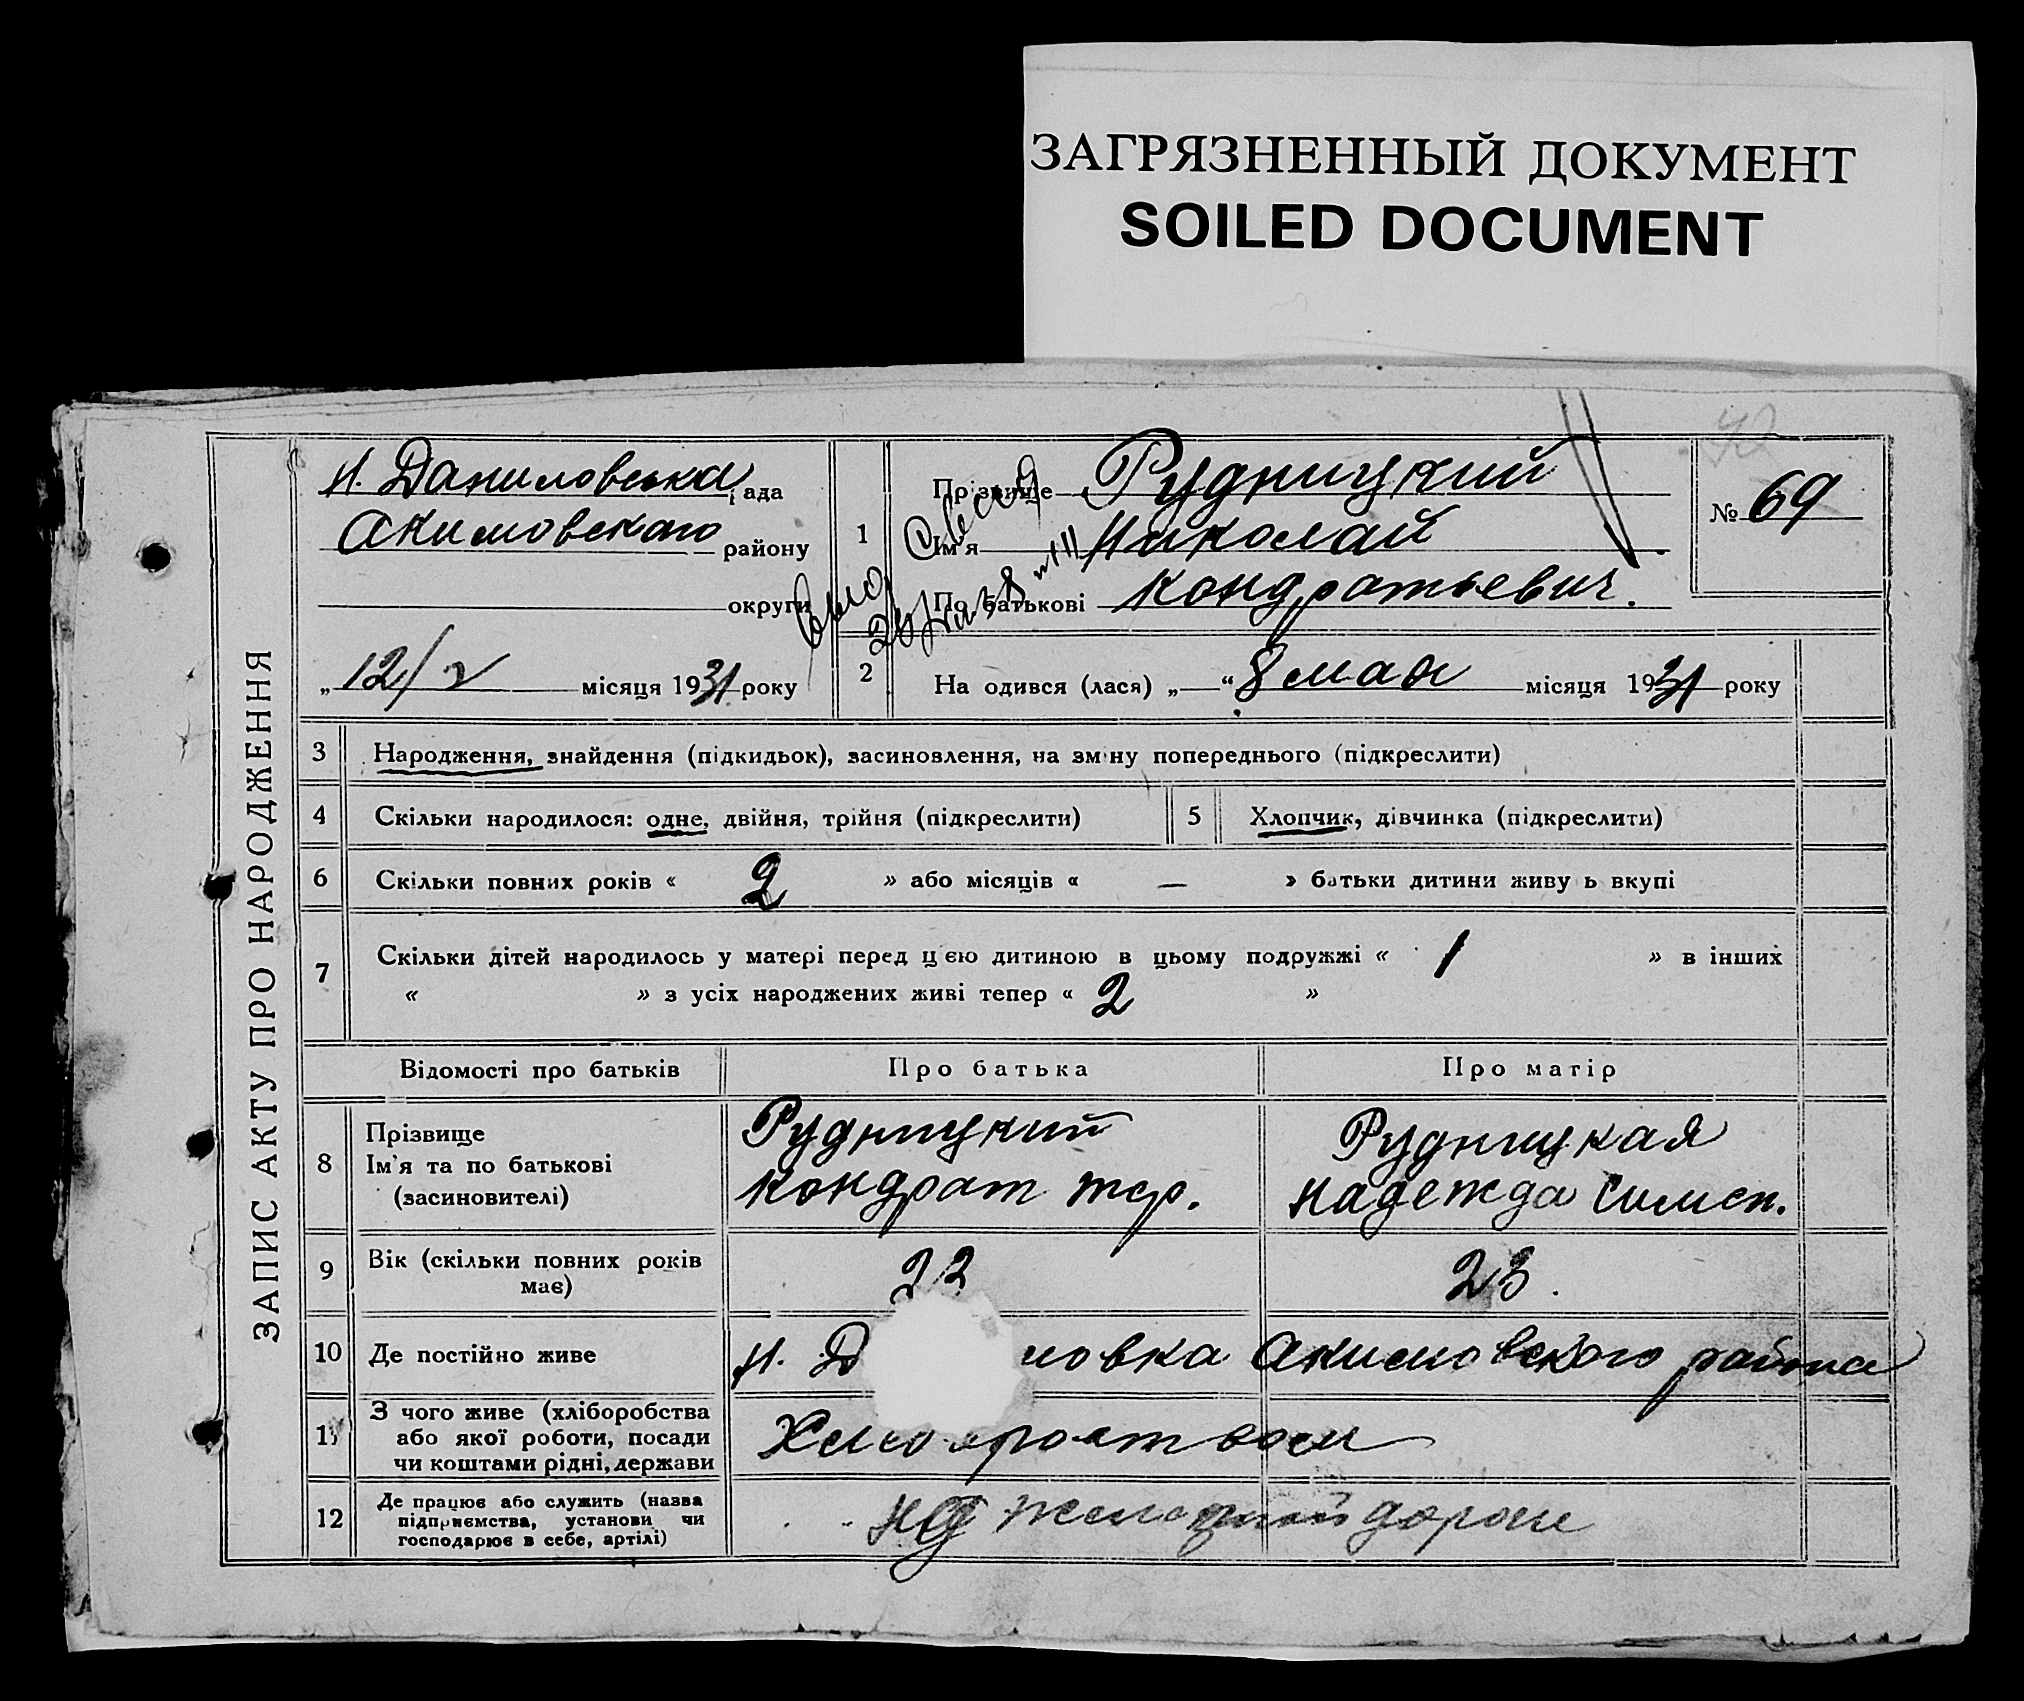 ЗАГРЯЗНЕННЫЙ ДОКУМЕНТ
SOILED DOCUMENT
ЗАПИС АКТУ ПРО НАРОДЖЕННЯ
Н. Даниловська рада
Акимовского району
округи
„12/ місяця 1931 року
1
Прізвище Рудницкий
Ім'я Николай
По батькові Кондратьевич.
№ 69
2
На одився (лася) „ “ 8 мая місяця 1931 року
3 Народження, знайдення (підкидьок), засиновлення, на зміну попереднього (підкреслити)
4 Скільки народилося: одне, двійня, трійня (підкреслити)
5 Хлопчик, дівчинка (підкреслити)
6 Скільки повних років « 2 » або місяців « — » батьки дитини живу ь вкупі
7 Скільки дітей народилось у матері перед цією дитиною в цьому подружжі « 1 » в інших
« » з усіх народжених живі тепер « 2 »
Відомості про батьків Про батька Про матір
8 Прізвище
Ім'я та по батькові
(засиновителі)
Рудницкий
Кондрат
Рудницкая
Надежда Симен.
9 Вік (скільки повних років
має)
22
23.
10 Де постійно живе
Н. Д новка Акимовского района
11 З чого живе (хліборобства
або якої роботи, посади
чи коштами рідні, держави
12 Де працює або служить (назва
підприємства, установи чи
господарює в себе, артілі)
дороге